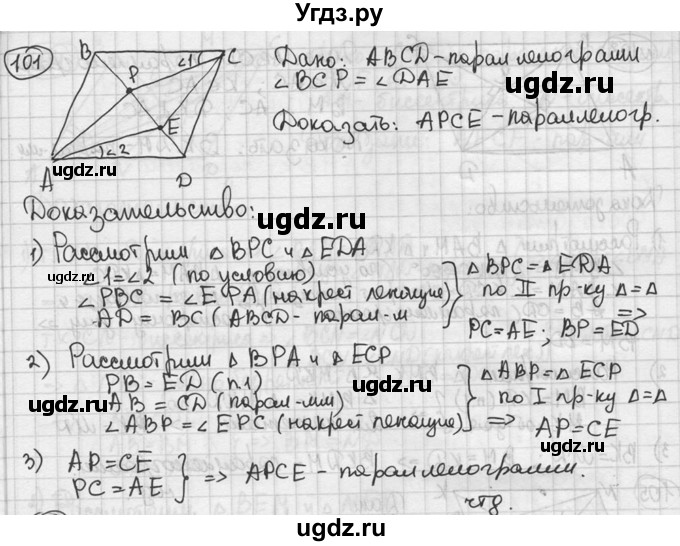 Угdz.ру
101
B
C
∠1
P
E
∠2
A
D
Дано: ABCD-параллелограмм
∠BCP = ∠DAE
Доказать: APCE - параллелогр.
Доказательство:
1) Рассмотрим △ BPC и △ EDA
∠1=∠2 (по условию)
∠PBC = ∠EDA (накрест лежащие)
AD = BC (ABCD- парал-м
△ BPC = △ EDA
по II пр-ку △=△
=>
PC=AE; BP=ED
2) Рассмотрим △ BPA и △ ECP
PB = ED (п.1)
AB = CD (парал-мм)
∠ABP = ∠EPC (накрест лежащие)
△ ABP = △ ECP
по I пр-ку △=△
=> AP=CE
3) AP=CE
PC=AE
=> APCE - параллелограмм.
чтд.
ugdz.ru
ugdz.ru
ugdz.ru
ugdz.ru
ugdz.ru
ugdz.ru
ugdz.ru
ugdz.ru
ugdz.ru
ugdz.ru
ugdz.ru
ugdz.ru